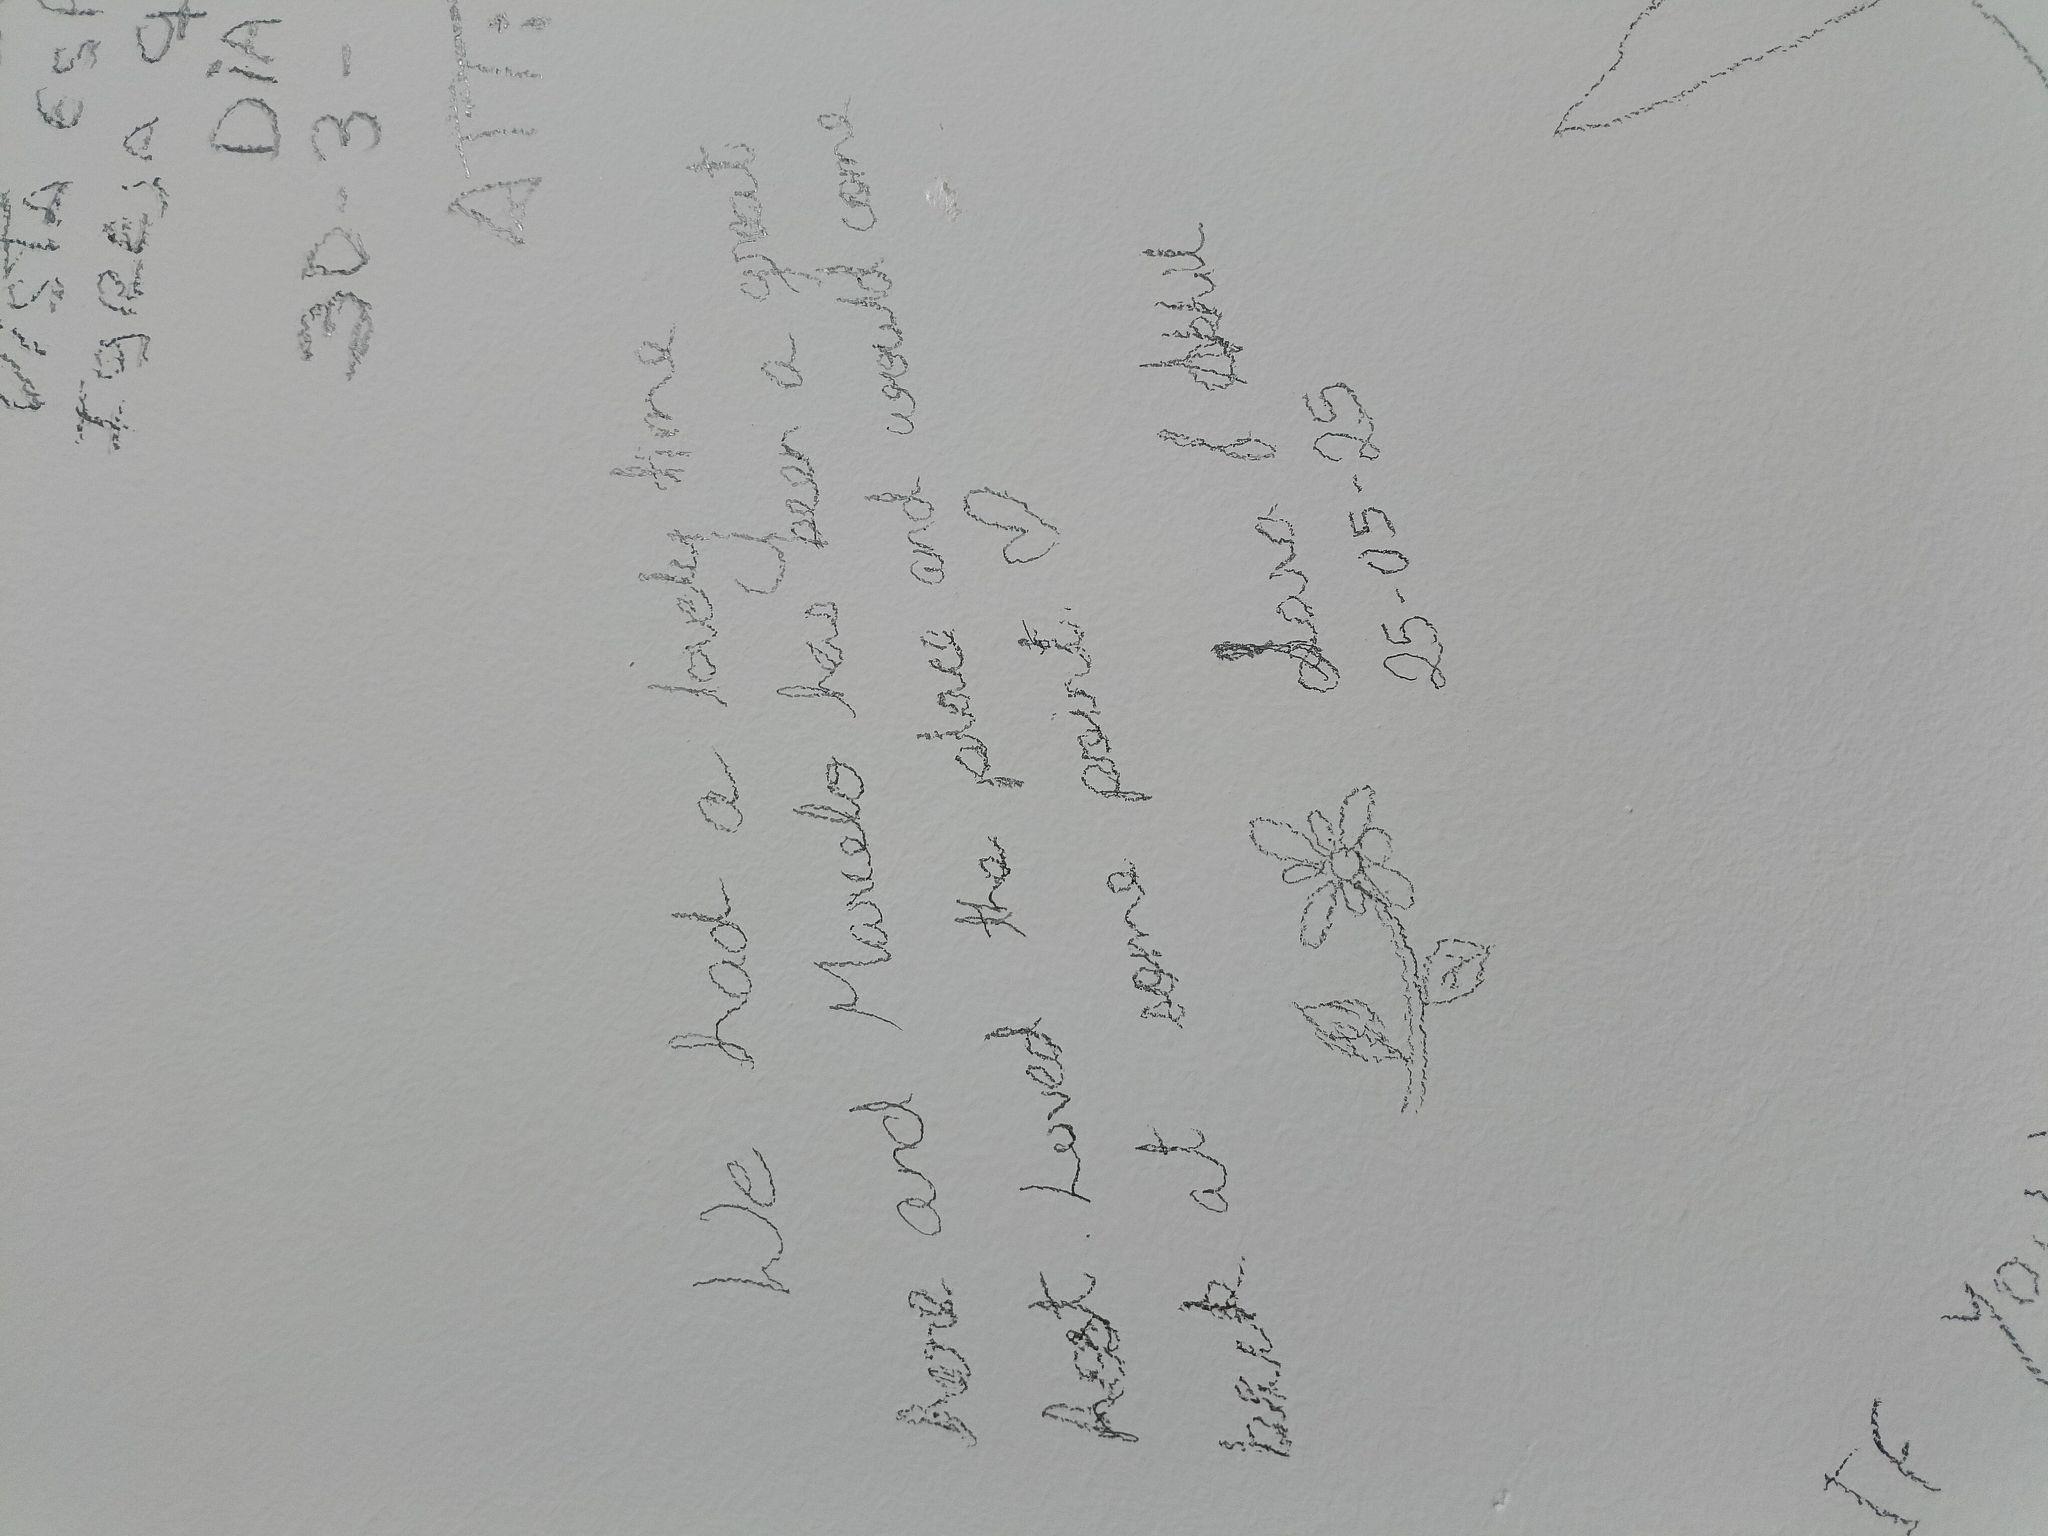 ESTA
IGREJA
DIA
30-3-
ATT:
We had a lovely time
here and Marcelo has been a great
host. Loved the place and would come
back at some point. ♡
25-05-25
IF YOU